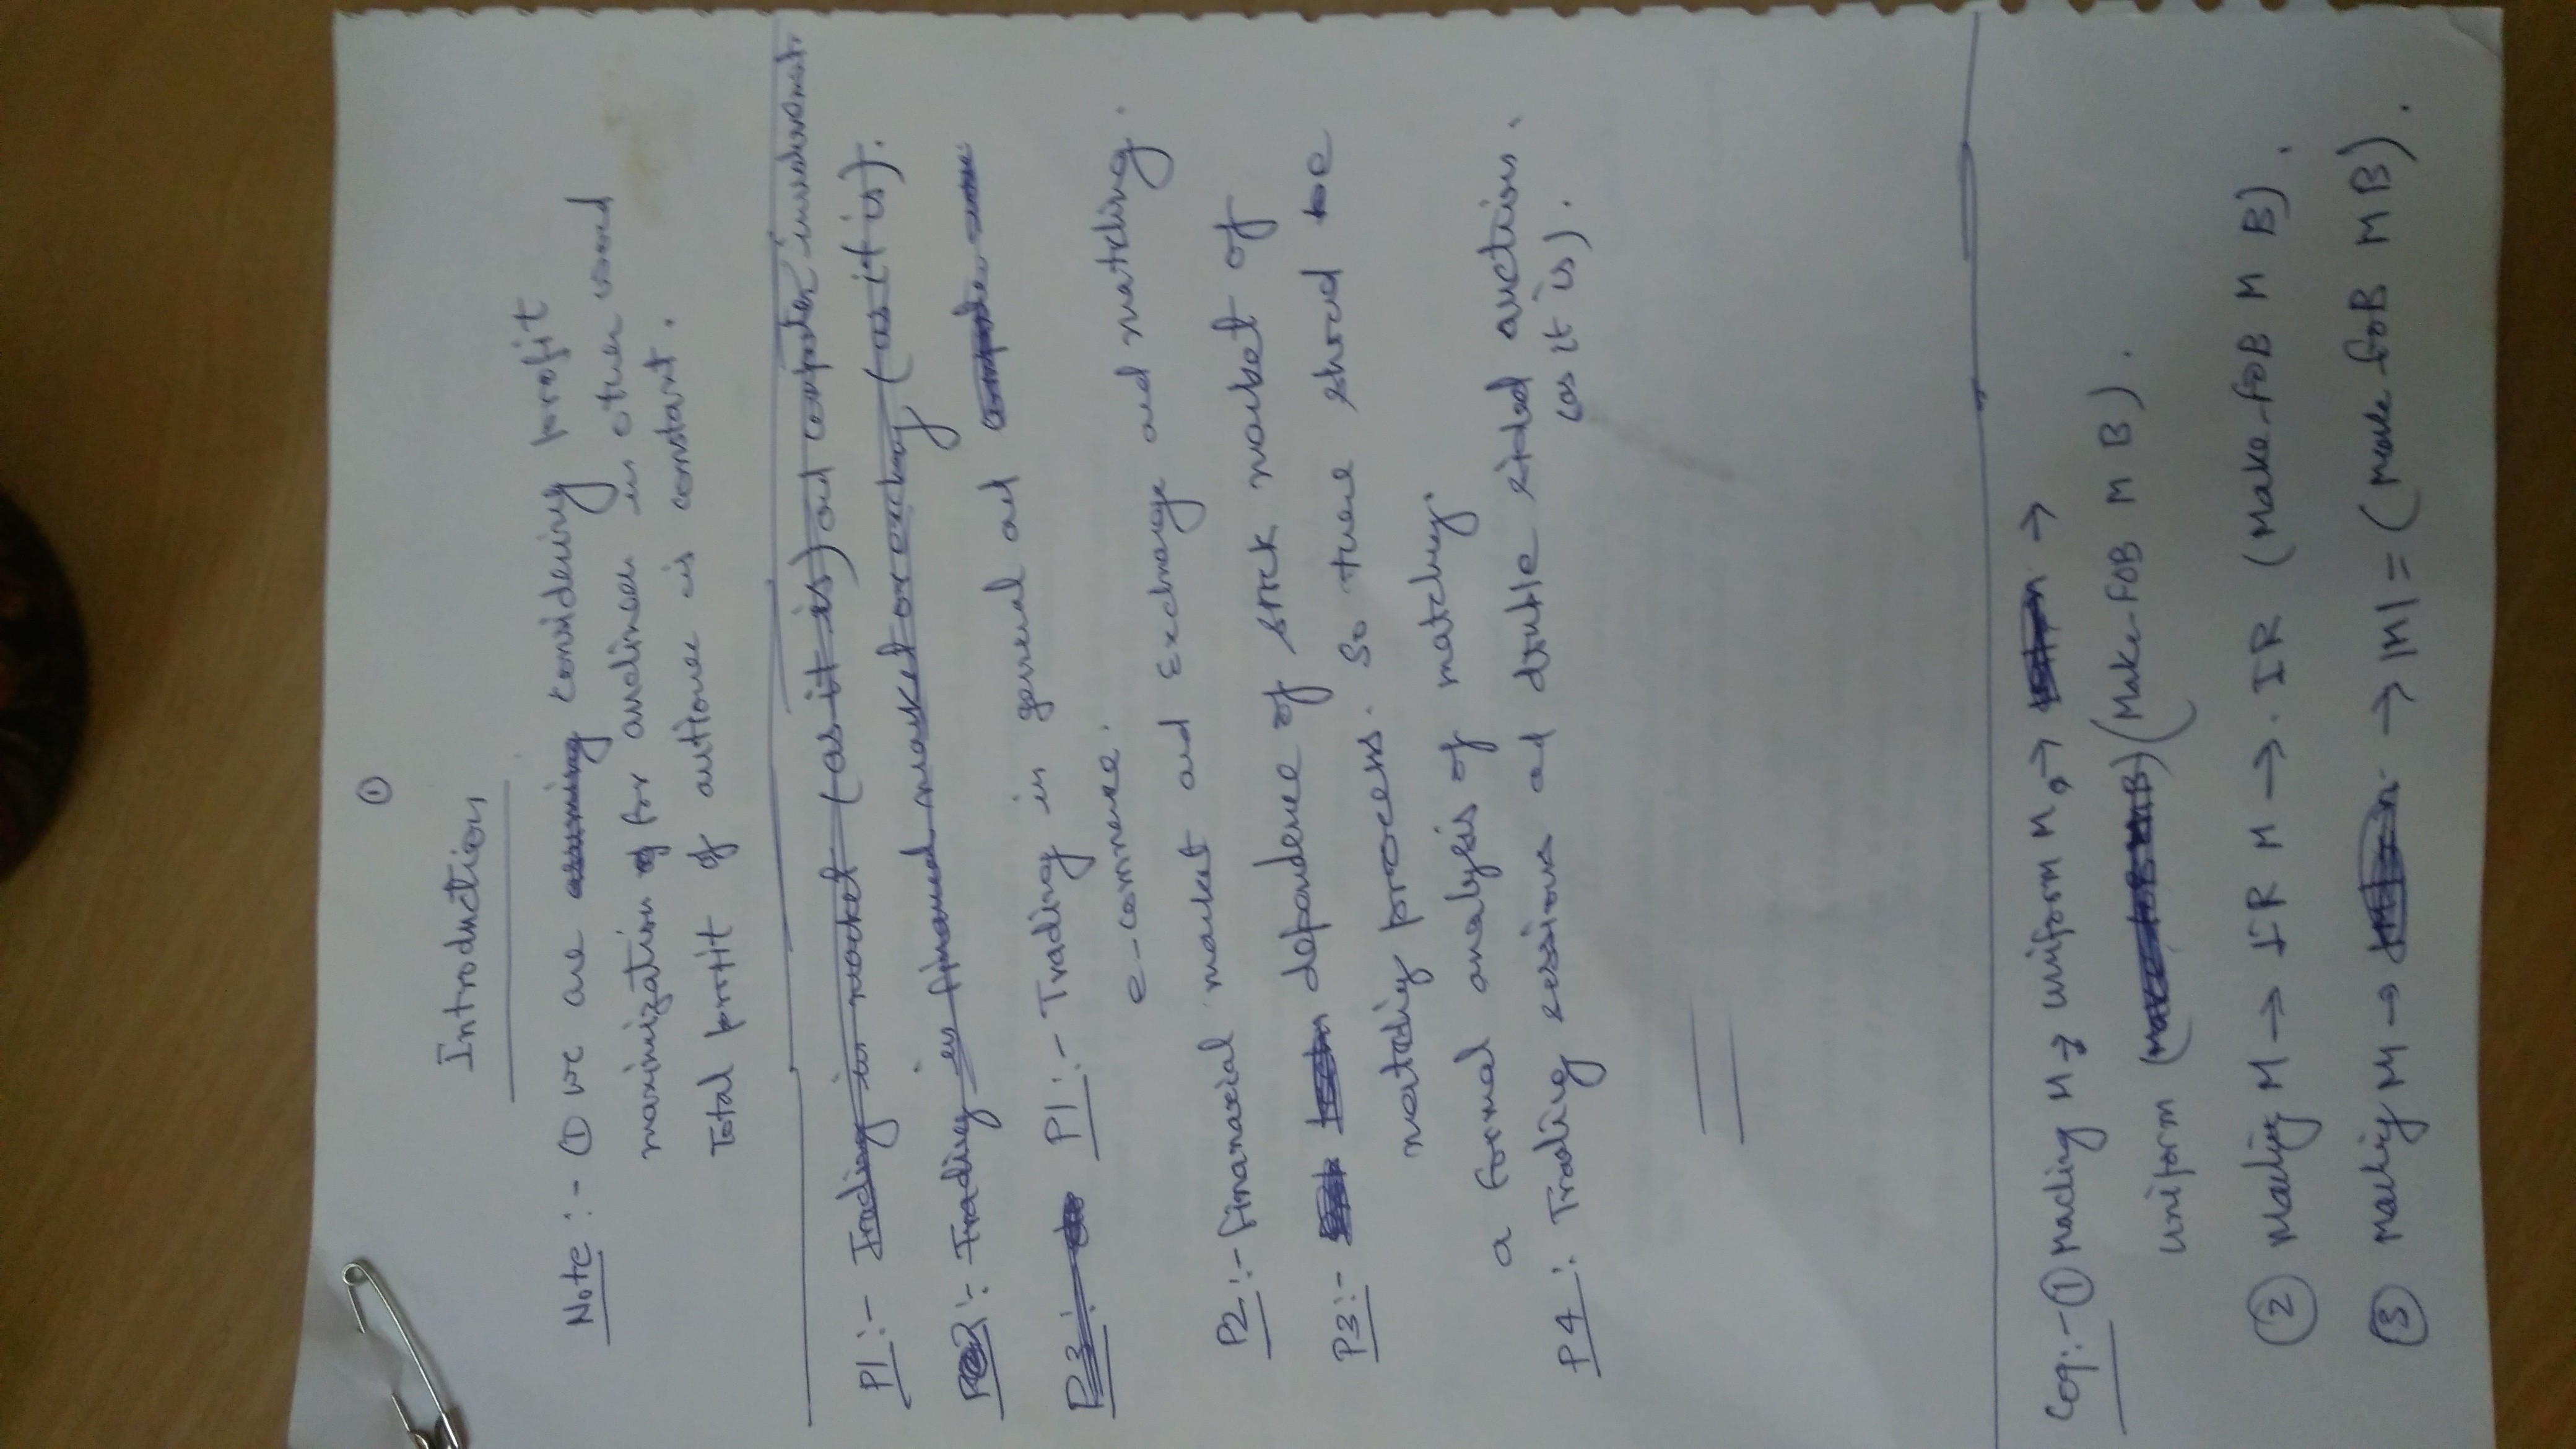 ①
Introduction
Note :- ① we are assuming considering profit
maximization of for in other word
Total profit of is constant.
P1:- Trading in market (as it is) and computer
P2:- Trading in financial market or (as it is).
P3:- P1:- Trading in general and
e-commerce.
P2:- finanaxial market and Exchange and matching.
P3:- dependence of stock market of
matching process. So there shoud be
a formal analysis of matching.
P4: Trading sessions and double sided auction.
(as it is).
Coq:- ① Matching M → uniform M → →
uniform (Make-FOB M B) (Make-FOB M B).
② Matching M → IR M → IR (Make-FOB M B).
③ Matching M → → |M| = (Make FOB M B).